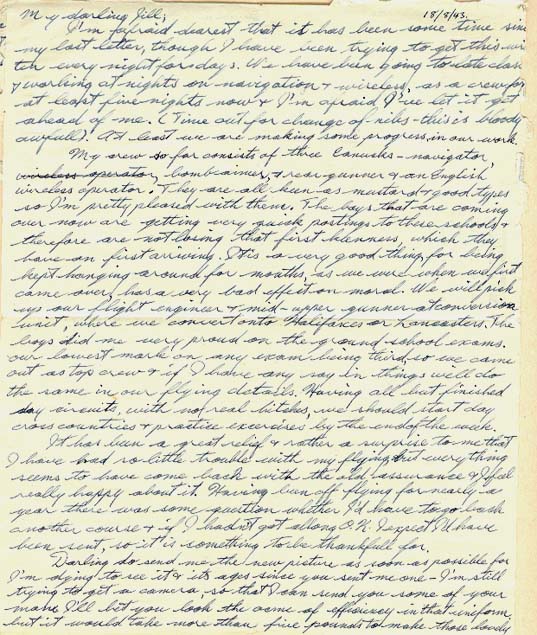 18/8/43.
My darling Jill;
I'm afraid dearest that it has been some time since
my last letter, though I have been trying to get this writ
ten every night for days. We have been going to late class
& working at nights on navigation & wireless, as a crew for
at least five nights now & I'm afraid I've let it get
ahead of me. (Time out for change of nibs - this is bloody
awful)! At least we are making some progress in our work.
My crew so far consists of three Canucks - navigator,
wireless operator, bombaimer, & rear gunner & an English
wireless operator. They are all keen as mustard & good types
so I'm pretty pleased with them. The boys that are coming
over now are getting very quick postings to these schools &
therefore are not losing that first keenness, which they
have on first arriving. It is a very good thing, for being
kept hanging around for months, as we were when we first
came over, has a very bad effect on moral. We will pick
up our flight engineer & mid-upper gunner at conversion
unit, where we convert onto Halifaxes or Lancasters. The
boys did me very proud on the ground school exams.
our lowest mark on any exam being third so we came
out as top crew & if I have any say in things we'll do
the same in our flying details. Having all but finished
day circuits, with no real hitches, we should start day
cross countries & practice exercises by the end of the week.
It has been a great relief & rather a surprise to me that
I have had so little trouble with my flying, but everything
seems to have come back with the old assurance & I feel
really happy about it. Having been off flying for nearly a
year there was some question whether I'd have to go back
another course & if I hadn't got along O.K. I expect I'd have
been sent, so it is something to be thankfull for.
Darling do send me the new picture as soon as possible for
I'm dying to see it & its ages since you sent me one - I'm still
trying to get a camera, so that I can send you some of your
man. I'll bet you look the acme of efficiency in that uniform
but it would take more than five pounds to make those lovely